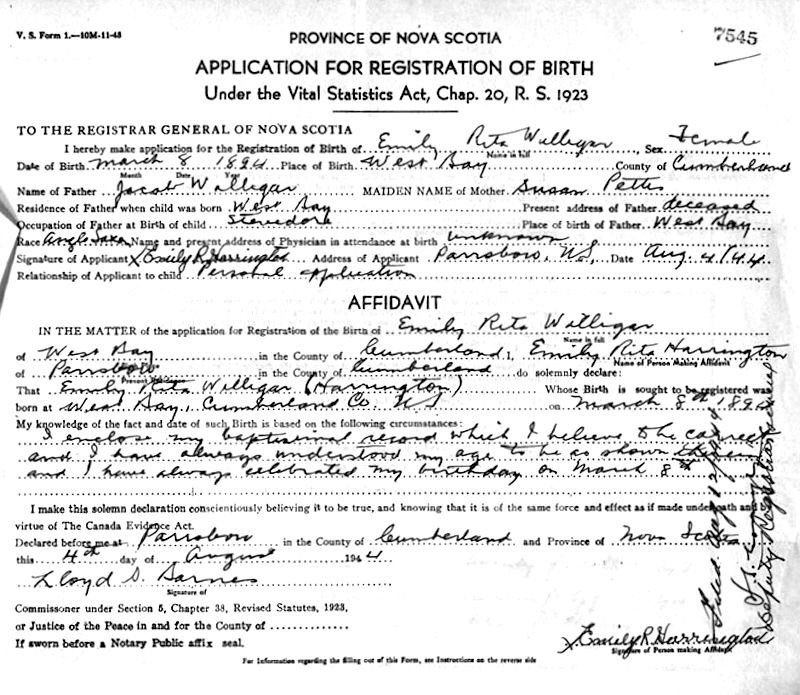 V. S. Form 1.—10M-11-43
7545
PROVINCE OF NOVA SCOTIA
APPLICATION FOR REGISTRATION OF BIRTH
Under the Vital Statistics Act, Chap. 20, R. S. 1923
TO THE REGISTRAR GENERAL OF NOVA SCOTIA
I hereby make application for the Registration of Birth of Emily Rita Willigar, Sex Female
Name in full
Date of Birth March 8 1894 Place of Birth West Bay County of Cumberland
Month Date Year
Name of Father Jacob Willigar MAIDEN NAME of Mother Susan Pettis
Residence of Father when child was born West Bay Present address of Father deceased
Occupation of Father at Birth of child Stevedore Place of birth of Father West Bay
Race Anglo Saxon Name and present address of Physician in attendance at birth unknown
Signature of Applicant x Emily R Harrington Address of Applicant Parrsboro, NS, Date Aug. 4/44
Relationship of Applicant to child Personal application
AFFIDAVIT
IN THE MATTER of the application for Registration of the Birth of Emily Rita Willigar
Name in full
of West Bay in the County of Cumberland I, Emily Rita Harrington
Name of Person Making Affidavit
of Parrsboro in the County of Cumberland do solemnly declare:
Present
That Emily Rita Willigar (Harrington) Whose Birth is sought to be registered was
born at West Bay, Cumberland Co. NS on March 8th 1894
My knowledge of the fact and date of such Birth is based on the following circumstances:
I enclose my baptismal record which I believe to be correct
and I have always understood my age to be as shown therein
and I have always celebrated my birthday on March 8th
I make this solemn declaration conscientiously believing it to be true, and knowing that it is of the same force and effect as if made under oath and by
virtue of The Canada Evidence Act.
Declared before me at Parrsboro in the County of Cumberland and Province of Nova Scotia
this 4th day of August 1944
Lloyd S. Barnes
Signature of
Commissioner under Section 5, Chapter 38, Revised Statutes, 1923,
or Justice of the Peace in and for the County of
If sworn before a Notary Public affix seal.
x Emily R Harrington
Signature of Person making Affidavit
For Information regarding the filling out of this Form, see Instructions on the reverse side
Filed Aug 12
Deputy Registrar General